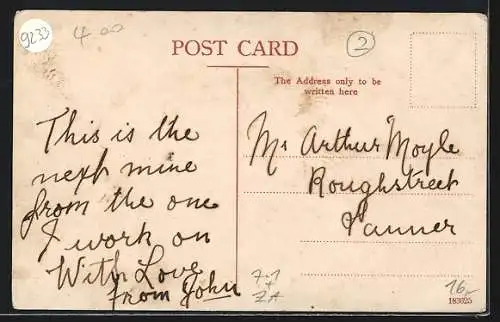 9233
4 00
2
POST CARD
The Address only to be
written here
This is the
next mine
from the one
I work on
With Love
from John
Mr Arthur Moyle
Roughstreet
Vanner
7-1
+
ZA
16,-
183025